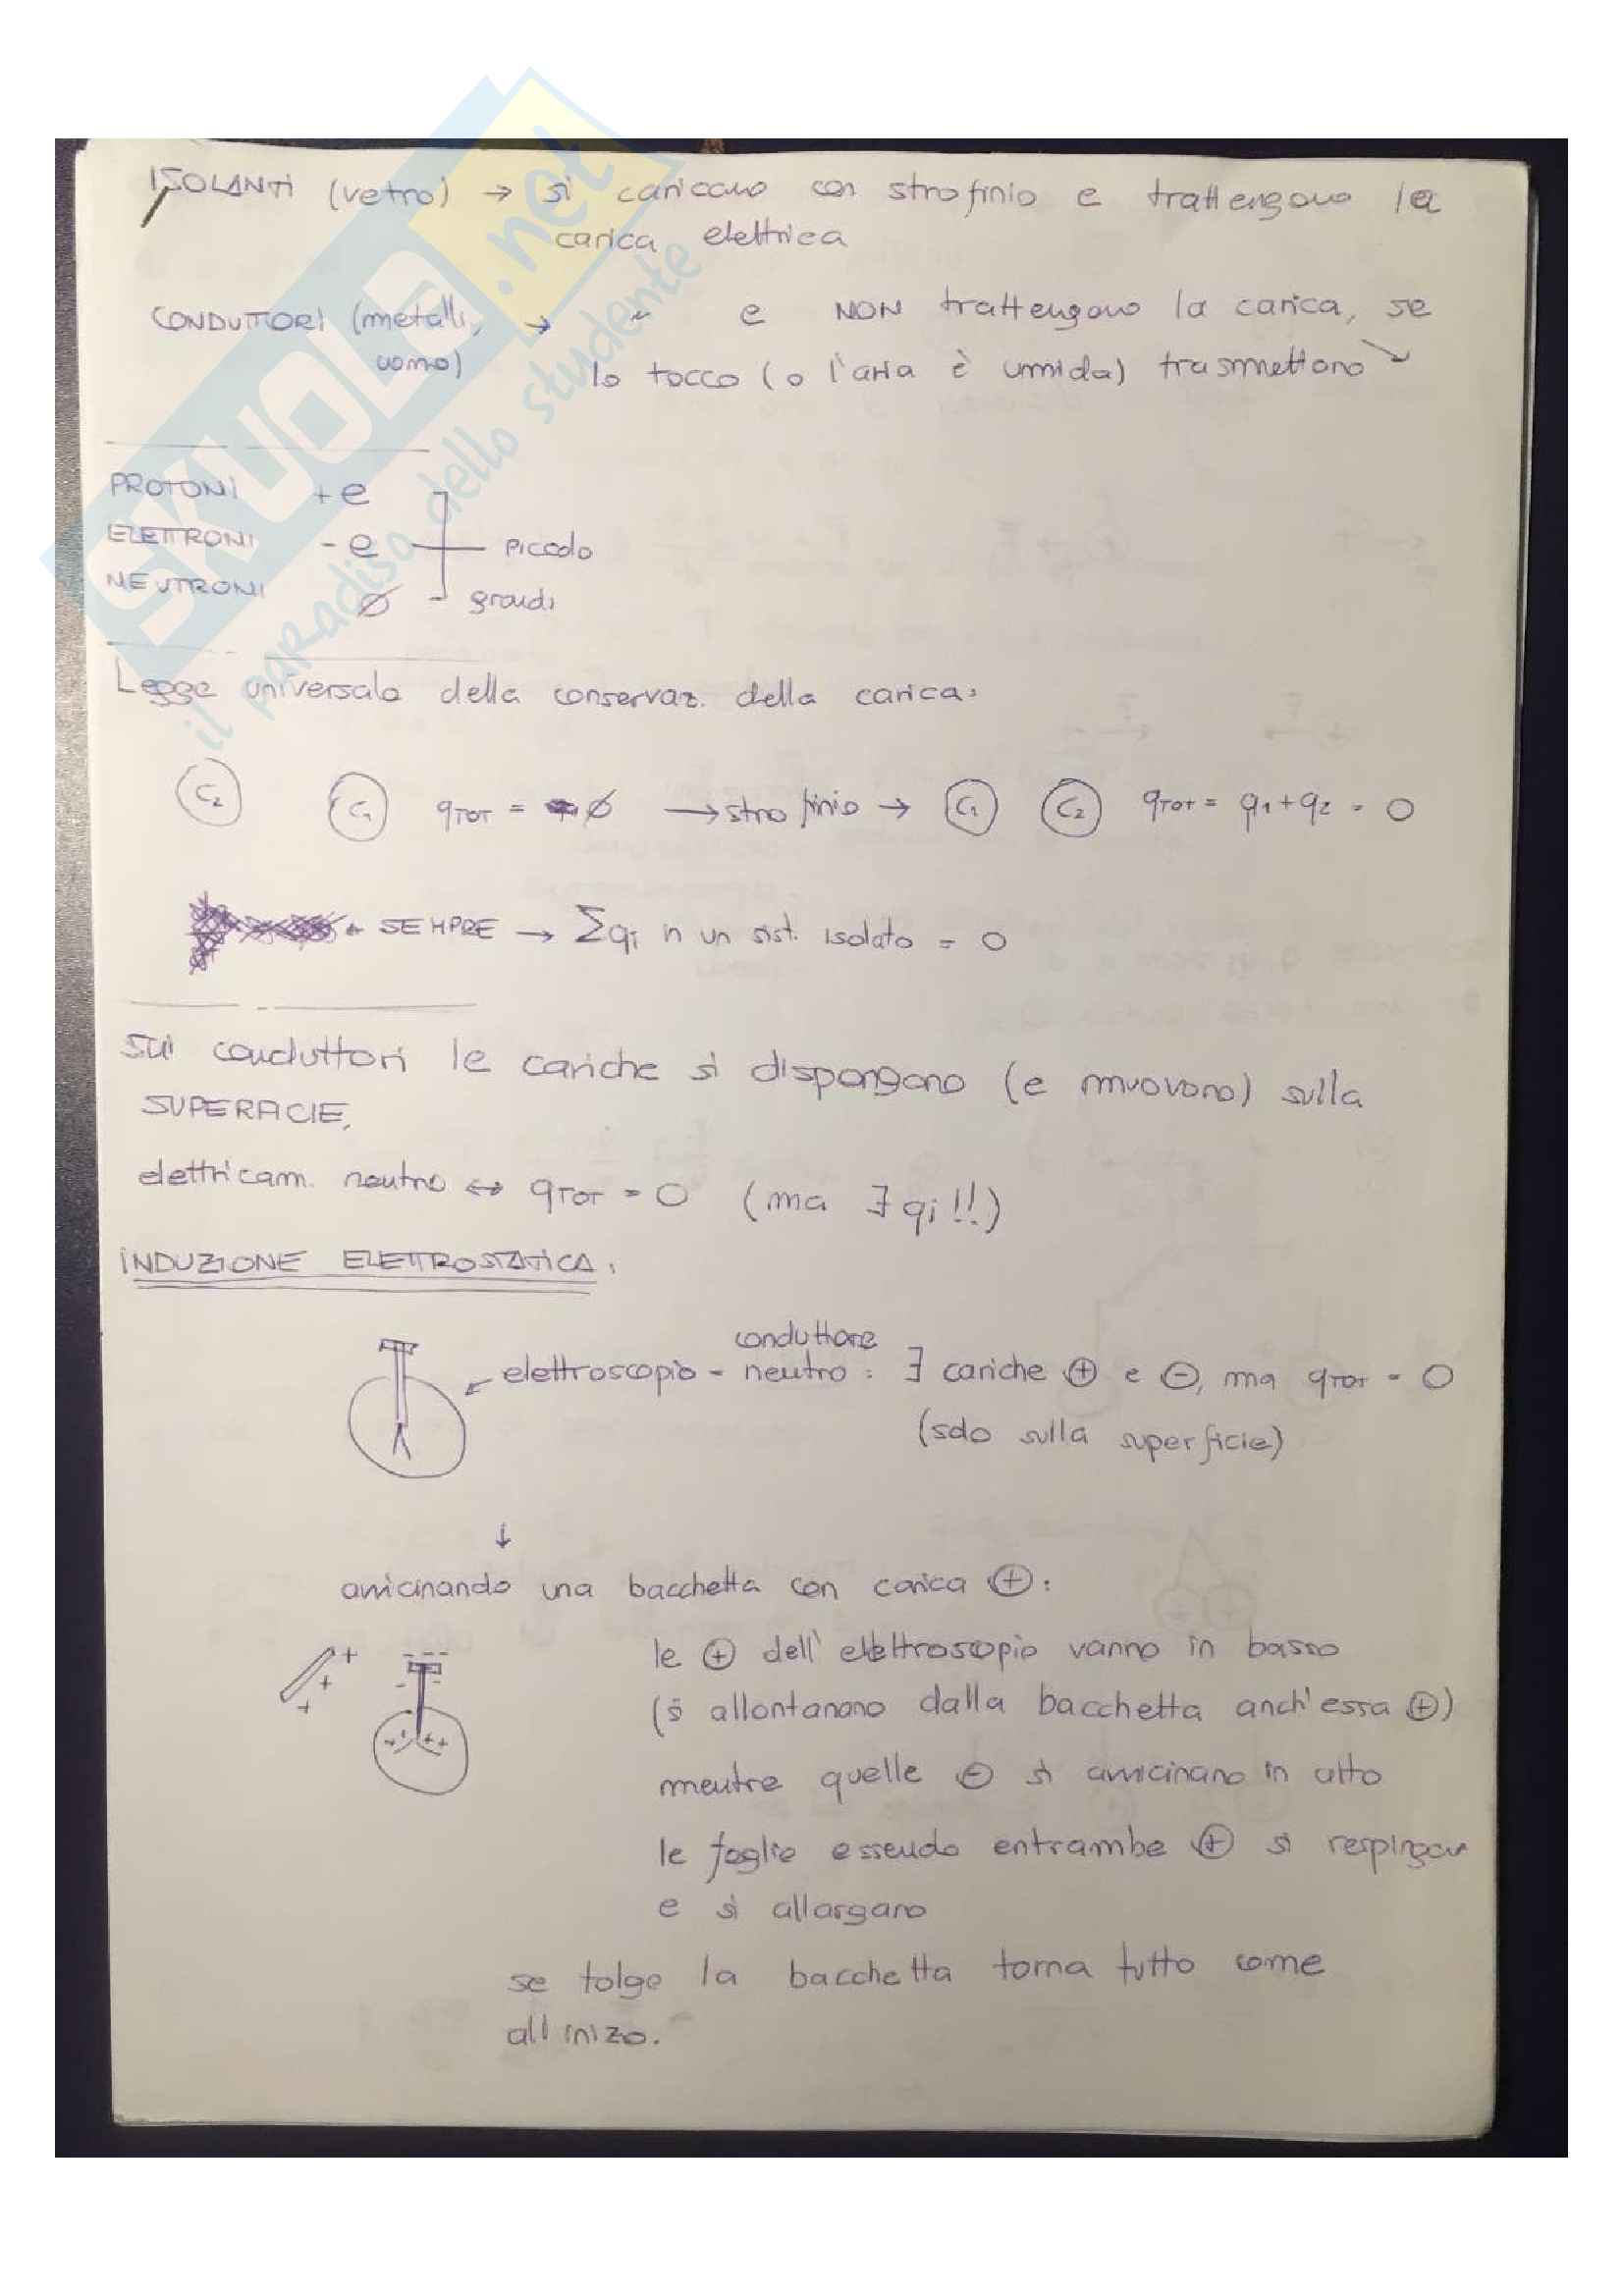 ISOLANTI (vetro) → si caricano con strofinio e trattengono la
carica elettrica
CONDUTTORI (metalli, → " e NON trattengono la carica, se
uomo) lo tocco (o l'aria è umida) trasmettono
PROTONI +e
ELETTRONI -e piccolo
NEUTRONI ∅ grandi
Legge universale della conservaz. della carica:
C2 C1 qTOT = ∅ → strofinio → C1 C2 qTOT = q1+q2 = 0
SEMPRE → Σqi in un sist. isolato = 0
Sui conduttori le cariche si dispongono (e muovono) sulla
SUPERFICIE,
elettricam. neutro ↔ qTOT = 0 (ma ∃ qi!!)
INDUZIONE ELETTROSTATICA:
conduttore
elettroscopio - neutro: ∃ cariche ⊕ e ⊖, ma qTOT = 0
(solo sulla superficie)
↓
avvicinando una bacchetta con carica ⊕:
le ⊕ dell'elettroscopio vanno in basso
(si allontanano dalla bacchetta anch'essa ⊕)
mentre quelle ⊖ si avvicinano in alto
le foglie essendo entrambe ⊕ si respingon
e si allargano
se tolgo la bacchetta torna tutto come
all'inizo.
SKUOLA.net
il paradiso dello studente